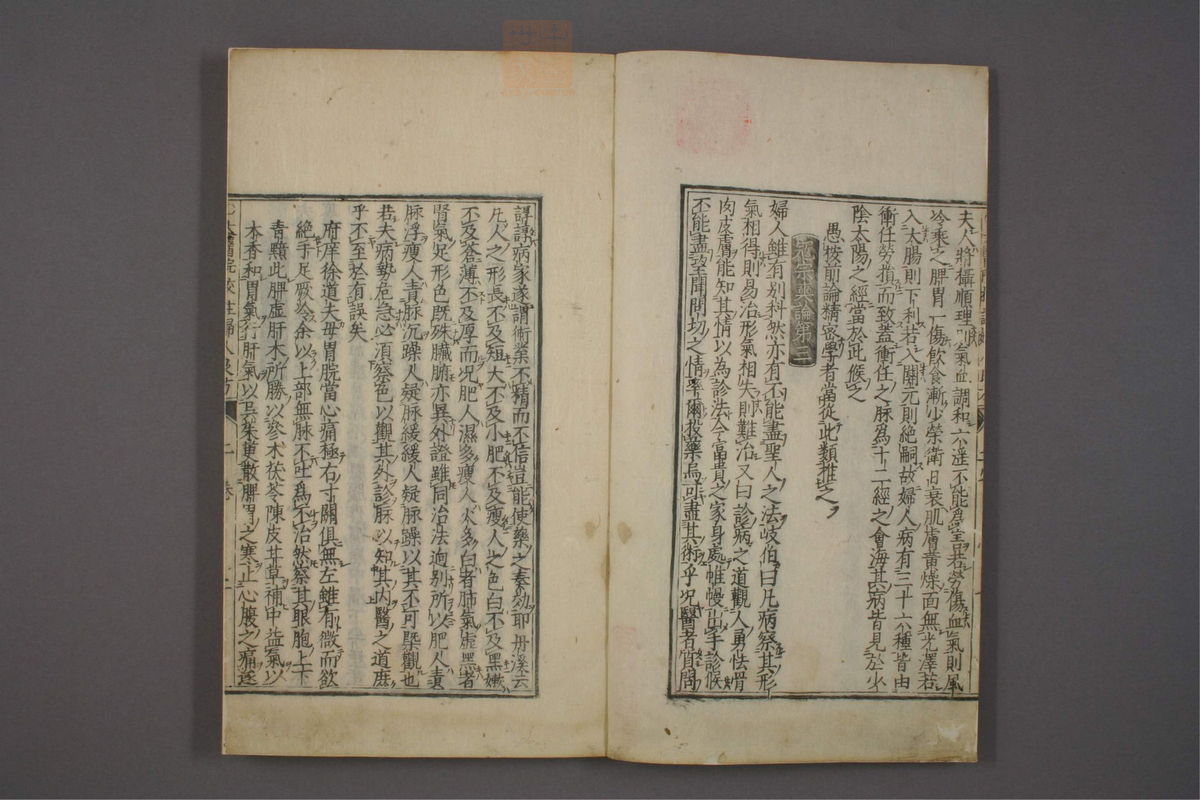 夫人將攝順理則氣血調和六淫不能為害若勞傷血氣則風
冷乘之脾胃一傷飲食漸少榮衛日衰肌膚黃燥面無光澤若
入大腸則下利若入關元則絕嗣故婦人病有三十六種皆由
衝任勞損而致蓋衝任之脉為十二經之會海其病皆見於少
陰太陽之經當於此候之
愚按前論精密學者當從此類推之
婦人雖有別科然亦有不能盡聖人之法岐伯曰凡病察其形
氣相得則易治形氣相失則難治又曰診病之道觀人勇怯骨
肉皮膚能知其情以為診法今富貴之家身處帷幔出手診候
不能盡望聞問切之情率爾投藥烏可盡其術乎况醫者質問
諄諄病家遂謂術業不精而不信豈能使藥之奏効耶丹溪云
凡人之形長不及短大不及小肥不及瘦人之色白不及黑嫩
不及蒼薄不及厚而况肥人濕多瘦人火多白者肺氣虛黑者
腎氣足形色既殊臟腑亦異外證雖同治法迥別所以肥人責
脉浮瘦人責脉沉躁人疑脉緩緩人疑脉躁以其不可槩觀也
若夫病勢危急必須察色以觀其外診脉以知其内醫之道庶
乎不至於有誤矣
府庠徐道夫母胃脘當心痛極右寸關俱無左雖有微而欲
絶手足厥冷余以上部無脉不吐為不治然察其眼胞上下
青黯此脾虛肝木所勝以參朮茯苓陳皮甘草補中益氣以
木香和胃氣行肝氣以吳茱萸散脾胃之寒止心腹之痛遂